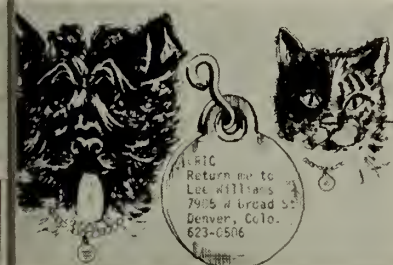 ERIC
Return me to
Lee Williams
7905 W Broad St
Denver, Colo.
623-0506